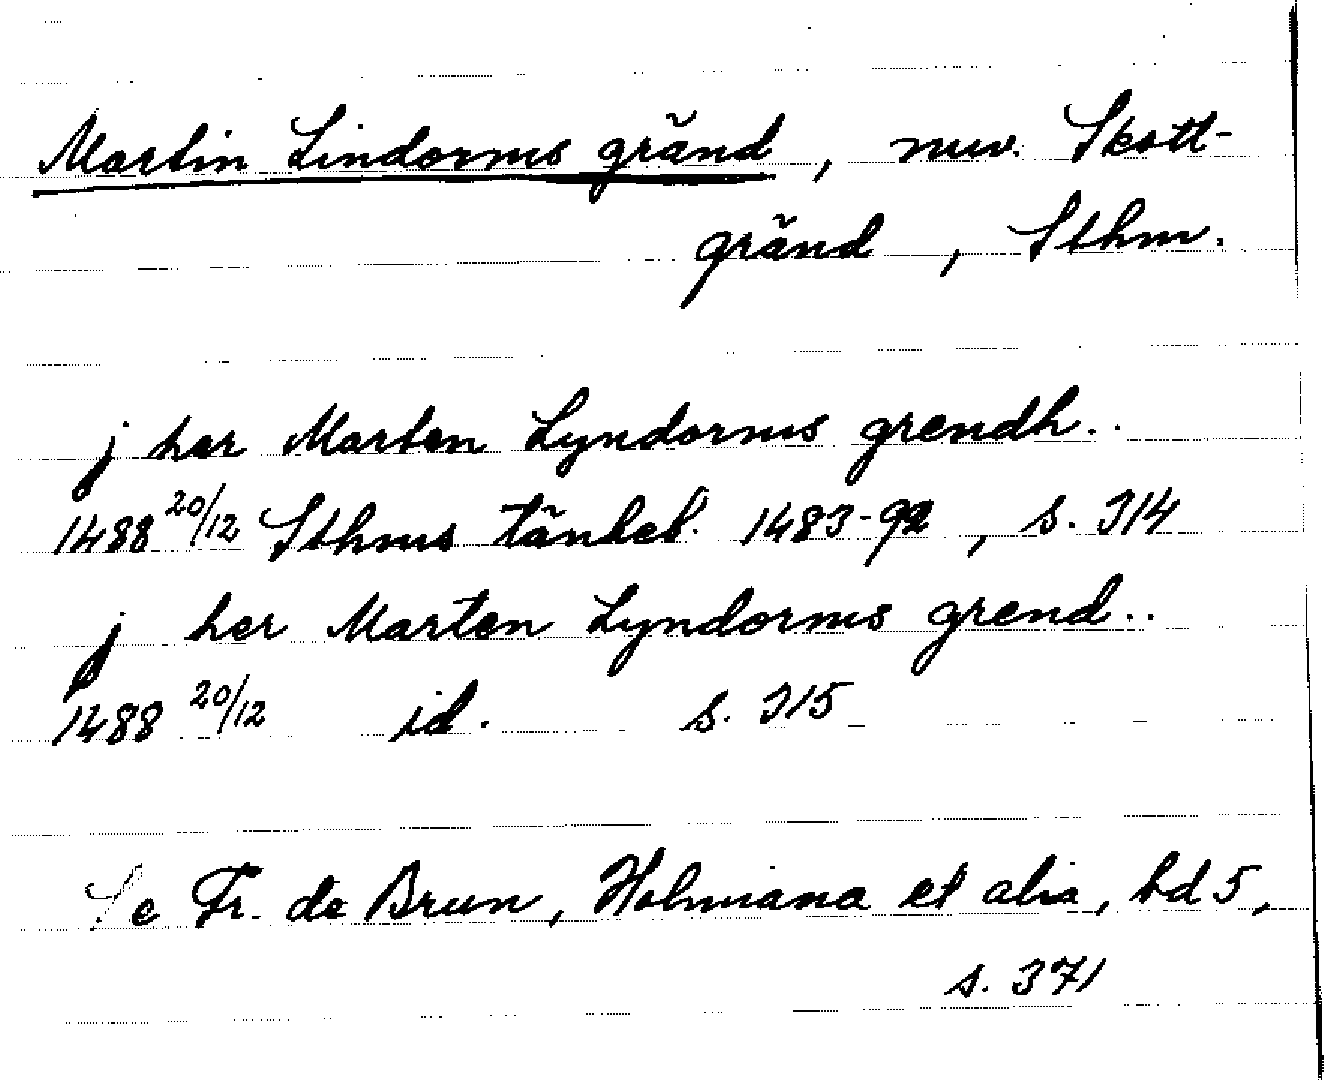 Martin Lindorms gränd, nuv. Skott-
gränd, Sthm.
j her Marten Lyndorms grendh..
1488 20/12 Sthms tänkeb. 1483-92, s. 314
j her Marten Lyndorms grend..
1488 20/12 id. s. 315
Se Fr. de Brun, Holmiana et alia, bd 5,
s. 371